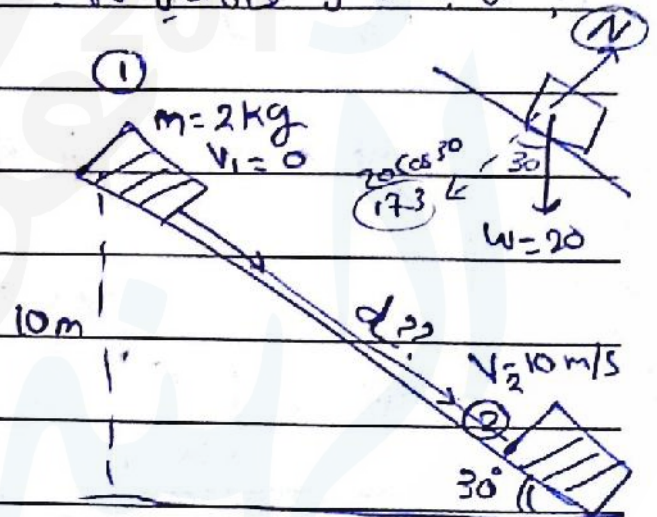 ①
N
m = 2 kg
V₁ = 0
20 cos 30
17.3
30
W = 20
10 m
d ??
V₂ = 10 m/s
②
30°